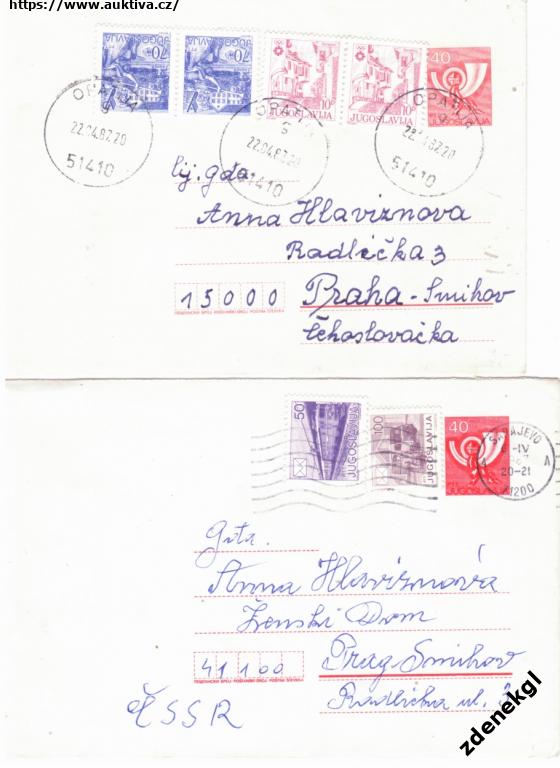 https://www.auktiva.cz/
JUGOSLAVIJA 70
JUGOSLAVIJA 70
10 JUGOSLAVIJA
10 JUGOSLAVIJA
40
JUGOSLAVIJA
OPATIJA
9
22.04.87.20
51410
OPATIJA
9
22.04.87.20
51410
OPATIJA
9
22.04.87.20
51410
lij. gđa.
Anna Hlaviznova
Radlička 3
15000
Praha-Smihov
Čehoslovačka
50 JUGOSLAVIJA
100 JUGOSLAVIJA
40
JUGOSLAVIJA
SARAJEVO
-IV
20-21
A
71200
Gđa.
Anna Hlaviznovia
Ženski Dom
41100
Prag Smihov
Radlička ul. 3
ČSSR
zdenekgl